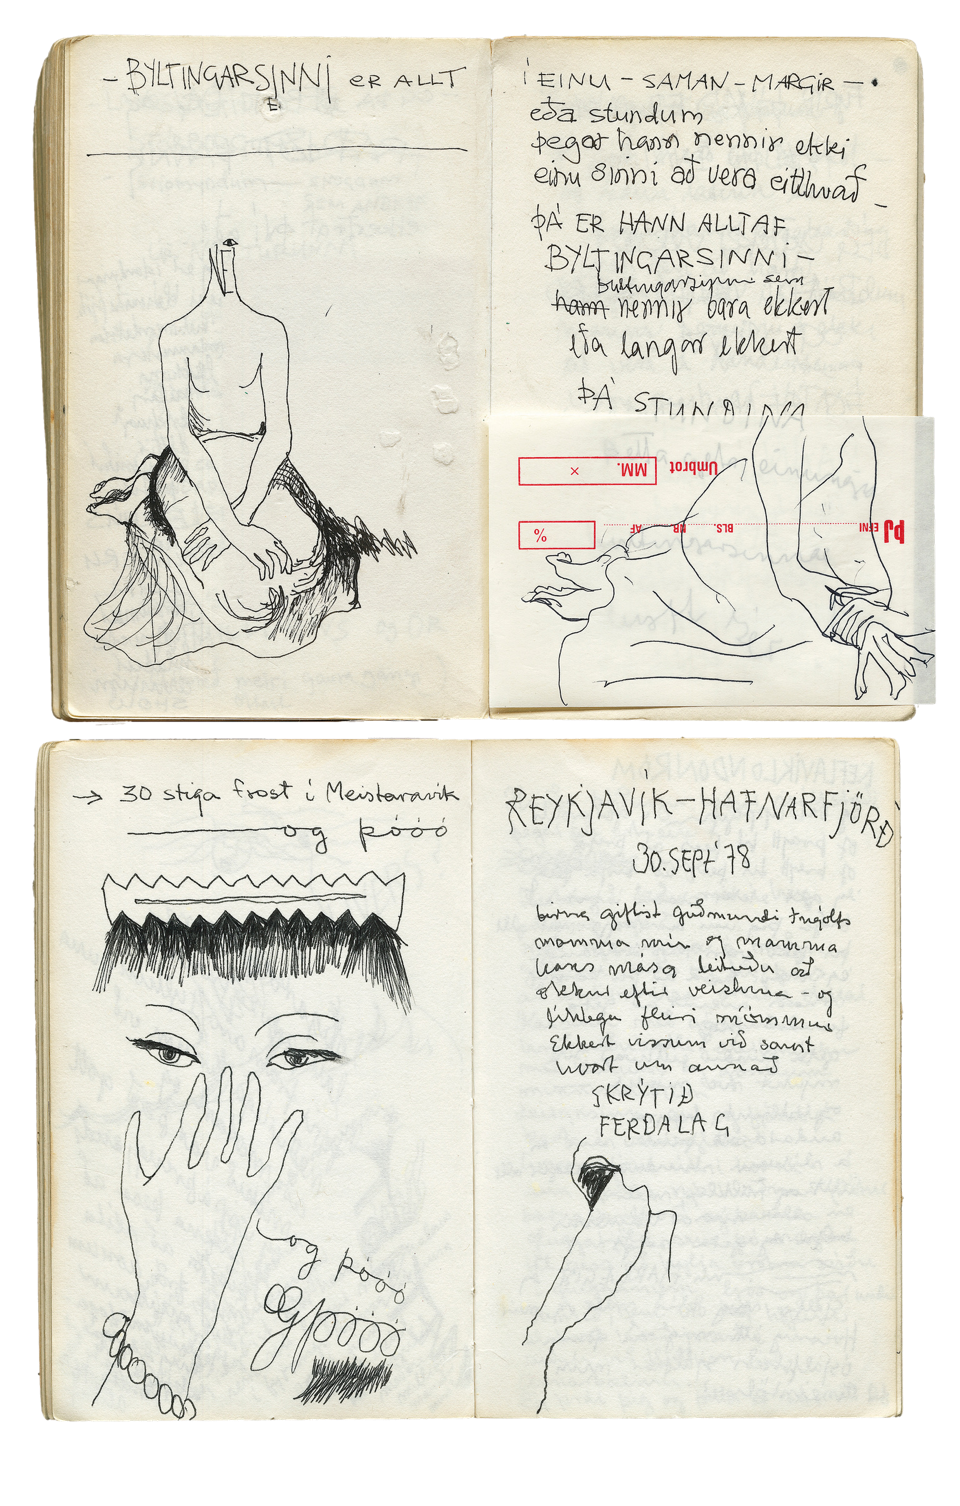 – BYLTINGARSINNI ER ALLT
E
NEI
í EINU – SAMAN – MARGIR –
eða stundum
þegar hann nennir ekki
einu sinni að vera eitthvað –
ÞÁ ER HANN ALLTAF
BYLTINGARSINNI –
byltingarsinni sem
hann nennir bara ekkert
eða langar ekkert
ÞÁ STUNDINA
× MM. Umbrot
% AF NR. BLS. EFNI þj
→ 30 stiga frost í Meistaravik
og þóóó
og þóóó
Og þóóó
REYKJAVÍK – HAFNARFJÖRÐ
30. SEPT '78
birna giftist guðmundi Ingólfs
mamma mín og mamma
leituðu að
okkur eftir veisluna – og
líklega fleiri mömmur
Ekkert vissum við samt
hvort um annað
SKRÝTIÐ
FERÐALAG